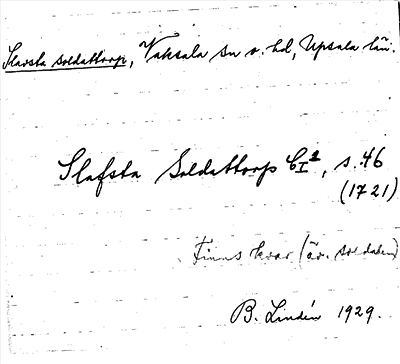 Slavsta soldattorp, Vaksala sn o. hd, Upsala län.
Slafsta Soldattorp CI2, s. 46
(1721)
Finns kvar (äv. soldaten)
B. Lindén 1929.